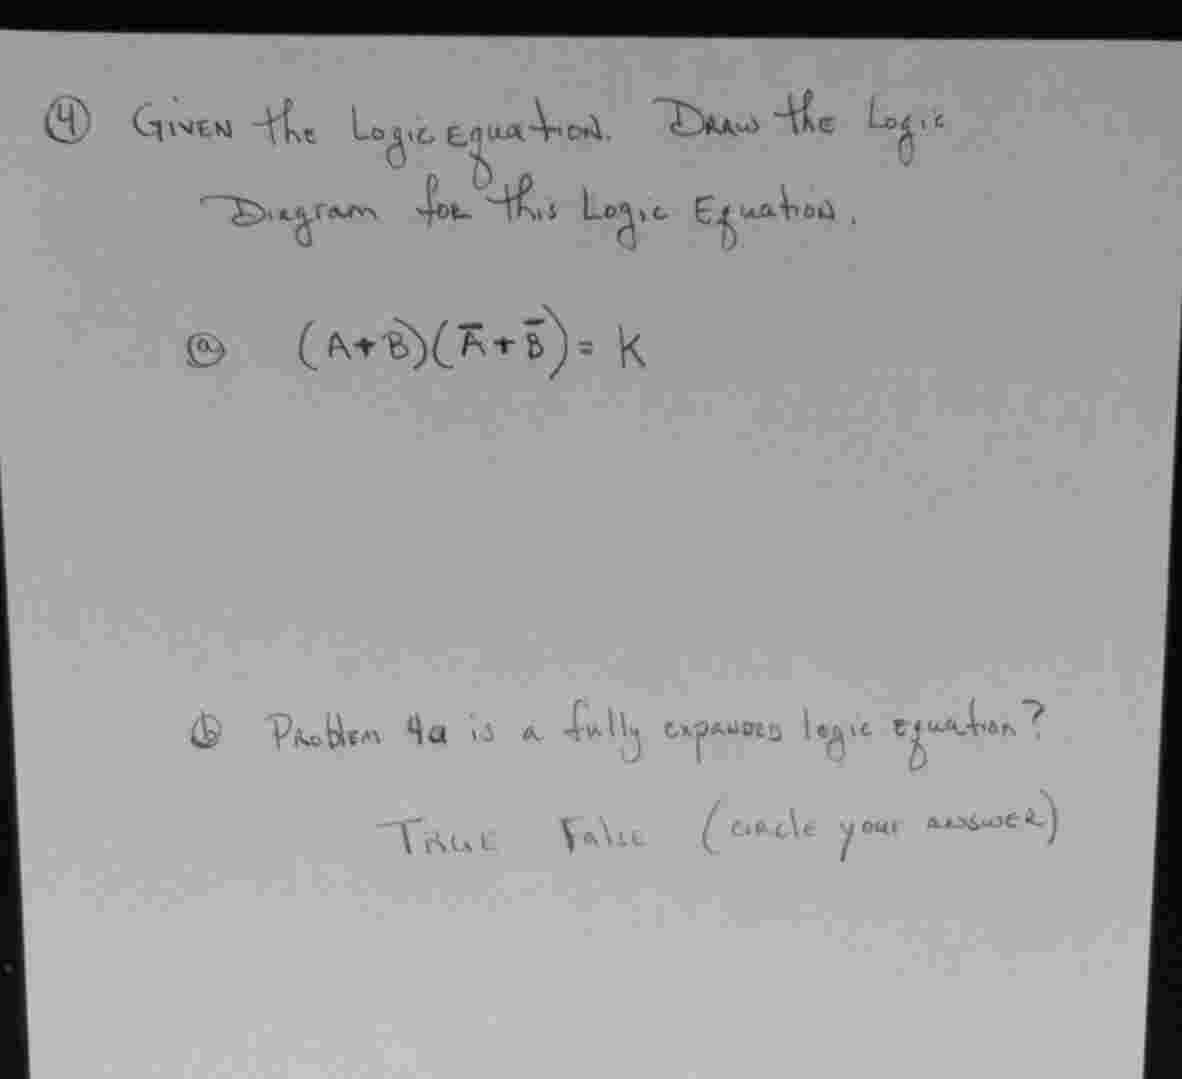 ④ GIVEN the Logic Equation. DRAW the Logic
Diagram for this Logic Equation.
ⓐ (A+B)(A̅+B̅)= K
ⓑ Problem 4a is a fully expanded logic equation?
TRUE False (circle your answer)